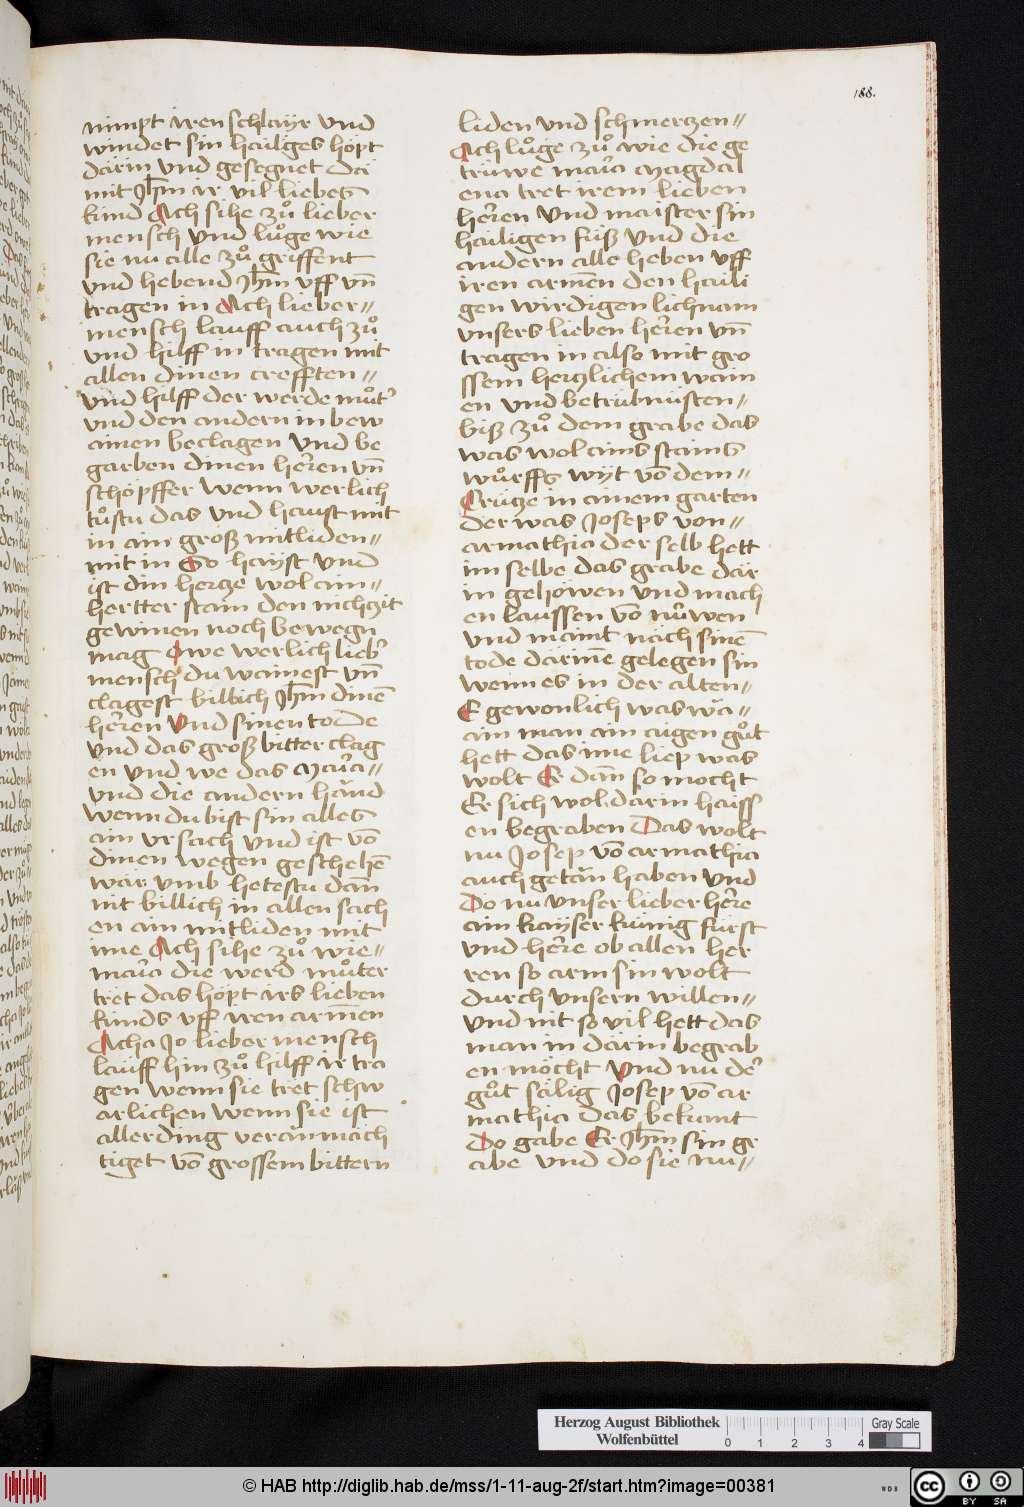 188.
nimpt iren schlayr vnd
windet sin hailges hopt
darin vnd gesegnet da
mit Jhm ir vil liebes
kind Ach sihe zuͦ lieber
mensch vnd luͦge wie
sie nu alle zuͦ griffent
vnd hebend Jhm vff vn̄
tragen in Ach lieber〃
mensch lauff auch zuͦ
vnd hilff in tragen mit
allen dinen crefften〃
vnd hilff der werde muͦt'
vnd den andern in bew
ainen beclagen vnd be
garben dinen heren vn̄
schöpffer wenn werlich
tuͦstu das vnd haust mit
in ain groß mitliden〃
mit in So hayst vnd
ist din hercze wol ain〃
hertter stain den nichzit
gewinen noch bewegn
mag Owe werlich lieb'
mensch du wainest vn̄
clagest billich Jhm dinē
heren vnd sinen tode
vnd das groß bitter clag
en vnd we das Maria〃
vnd die andern händ
wenn du bist sin alles
ain vrsach vnd ist vō
dinen wegen geschehē
wär vmb hetestu dan̄
nit billich in allen sach
en ain mitliden mit
ime Ach sihe zuͦ wie〃
maria die werd muͦter
tret das höpt irs lieben
kinds vff iren armen
Acha Jo lieber mensch
lauff hin zuͦ hilff ir tra
gen wenn sie tret schw
arlichen wenn sie ist
allerding verän mäch
tiget vō grossem bittern
liden vnd schmerczen〃
Ach luͦge zuͦ wie die ge
trüwe maria Magdal
ena tret irem lieben
heren vnd maister sin
hailigen füß vnd die
andern alle heben vff
iren armen den haili
gen wirdigen lichnam
vnsers lieben heren vn̄
tragen in also mit gro
ssem herczlichem wain
en vnd betrübnüsten〃
biß zuͦ dem grabe das
was wol ains stains
wuͦrffs wyt vō dem〃
Crücze in ainem garten
der was Joseps von〃
armathia der selb hett
im selbe das grabe där
in gehöwen vnd mach
en laussen vō nüwen
vnd maint nach sinē
tode därine gelegen sin
wenn es in der alten〃
E gewonlich was wa〃
ain man ain aigen guͦt
hett das ime liep was
wolt Er dan̄ so mocht
Er sich wol darin haiss
en begraben Das wolt
nu Josep vō armathia
auch getän haben vnd
Do nu vnser lieber here
ain kayser künig fürst
vnd here ob allen her
ren so arm sin wolt
durch vnsern willen〃
vnd nit so vil hett das
man in darin begrab
en möcht Vnd nu de'
guͦt sälig Josep vō ar
mathia das bekant
Do gabe Er Jhm sin gr
abe vnd do sie nu〃
Herzog August Bibliothek
Wolfenbüttel
0 1 2 3 4
Gray Scale
© HAB http://diglib.hab.de/mss/1-11-aug-2f/start.htm?image=00381
WDB
cc BY SA